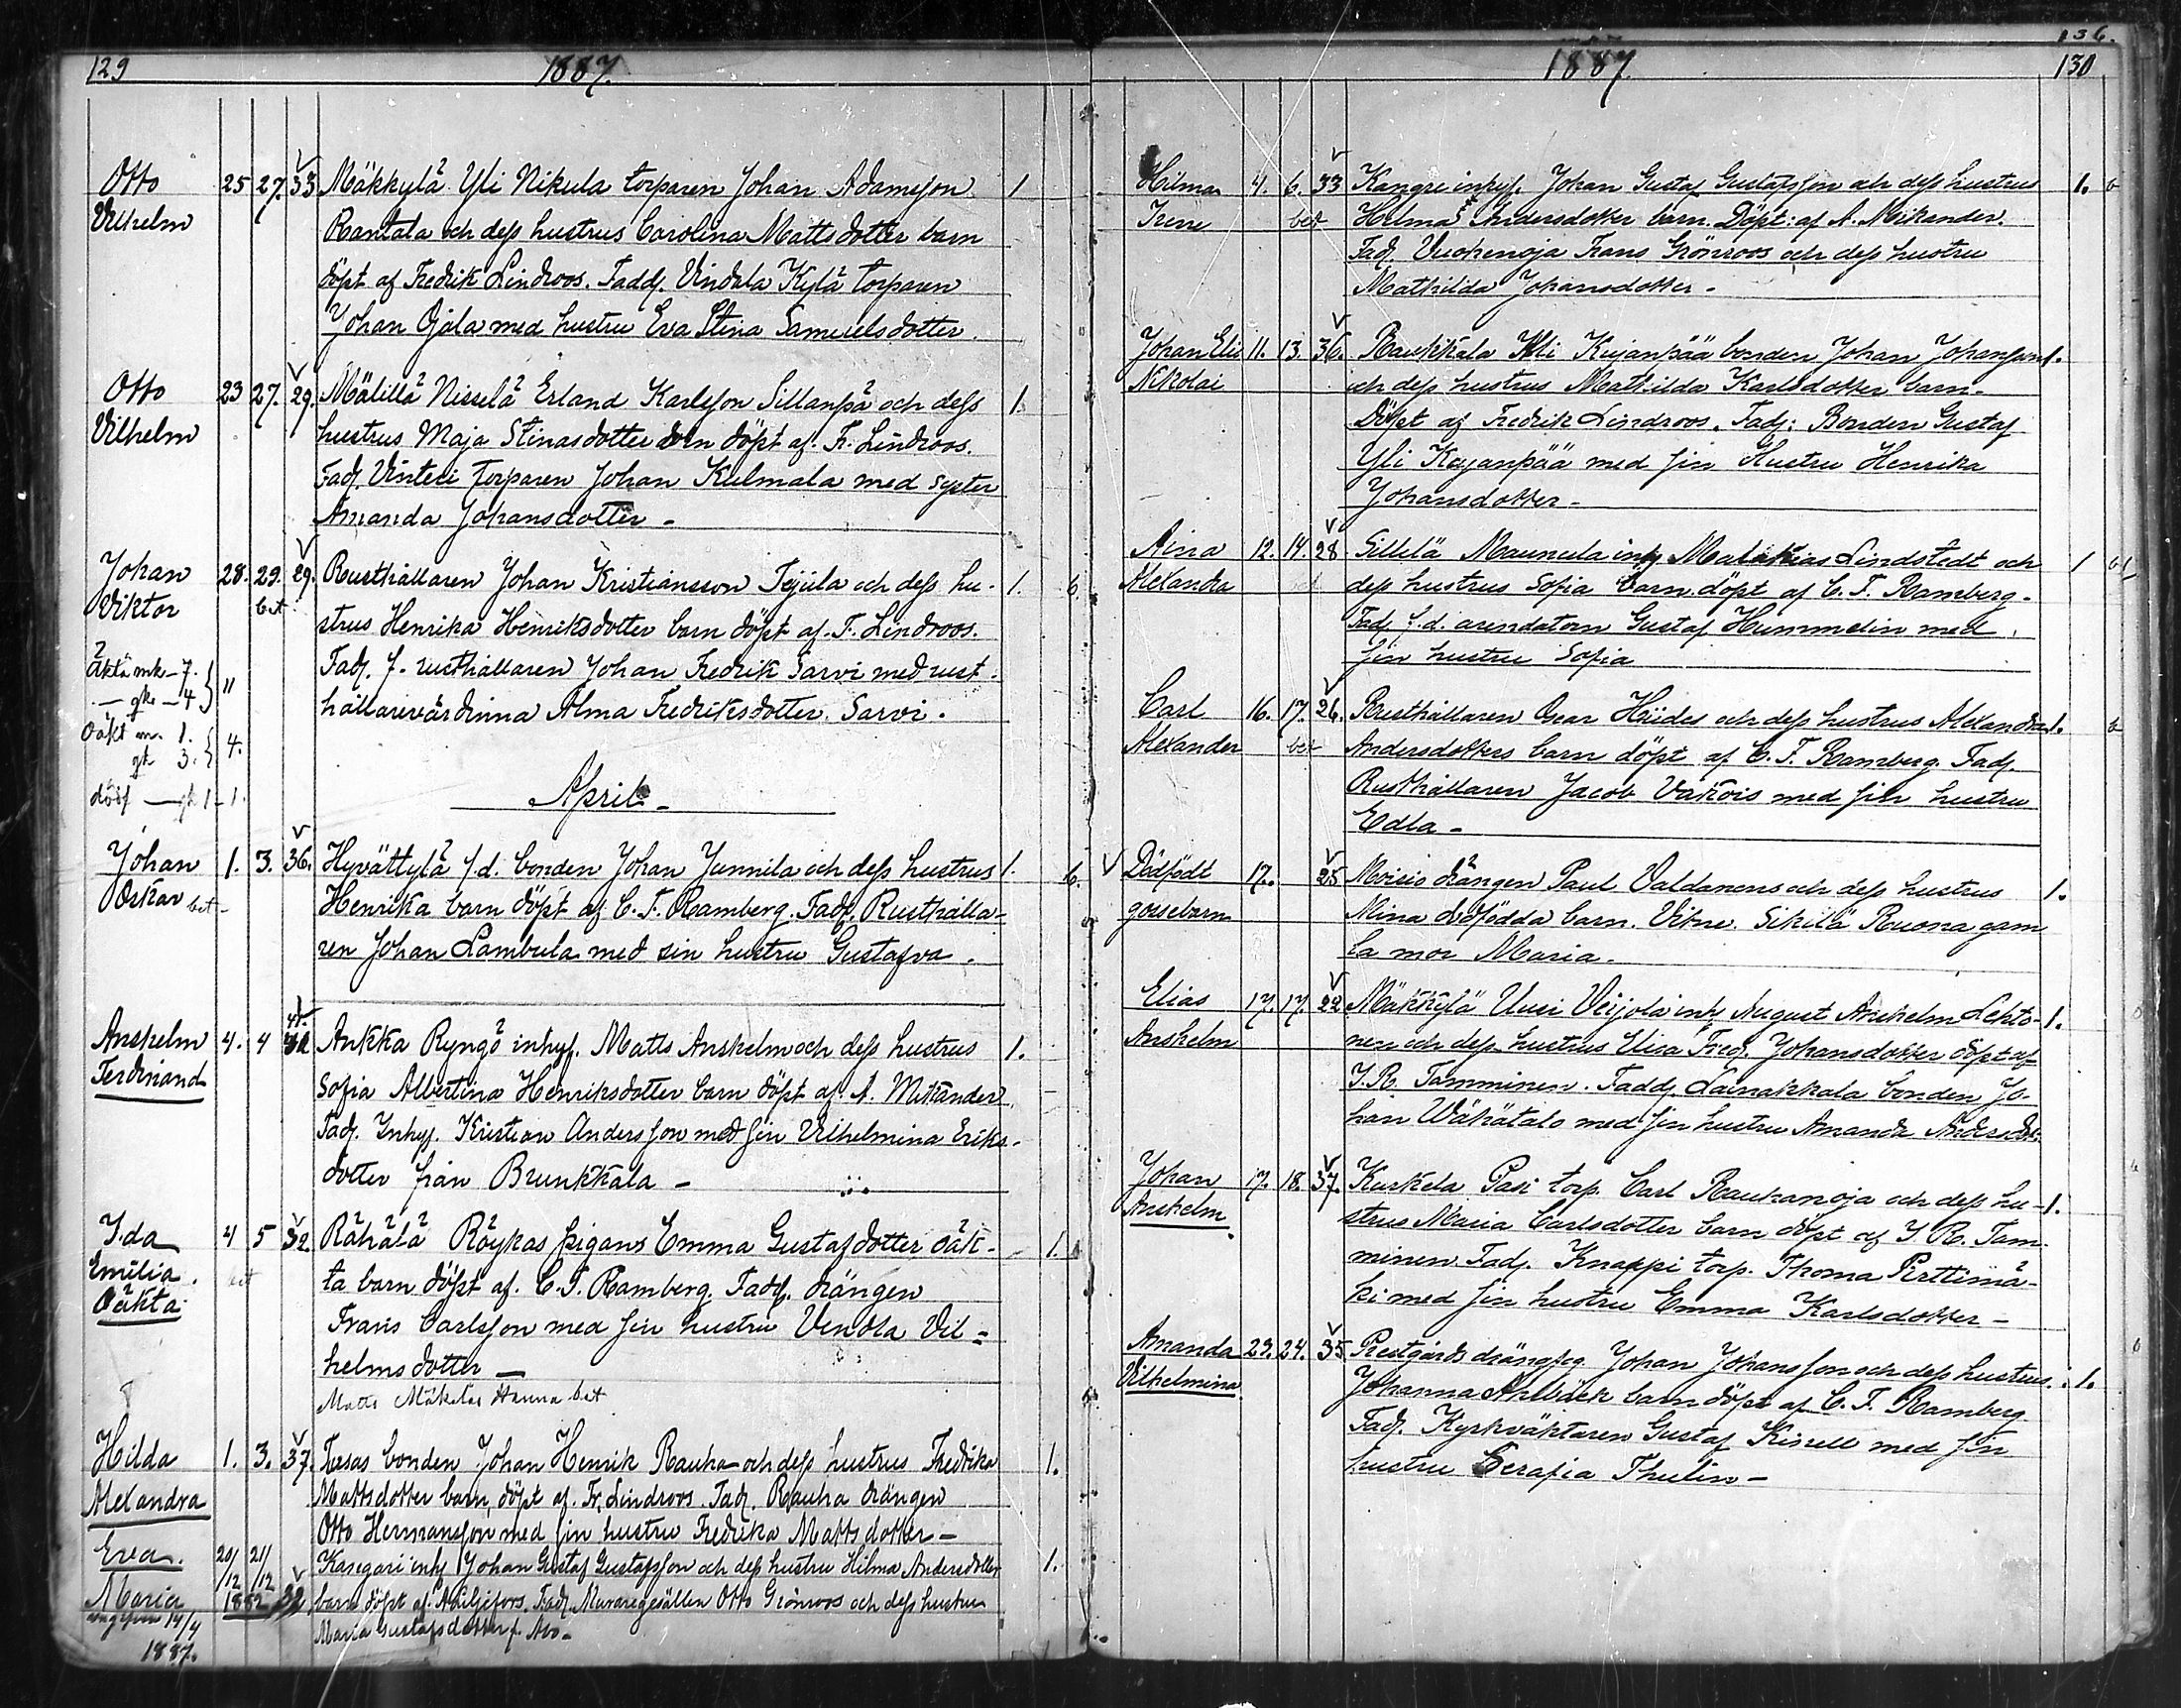 129
1887.
Otto 25 27. 33 Mäkkylä Yli Nikula torparen Johan Adamsson 1
Vilhelm Rantala och dess hustrus Carolina Mattsdotter barn
döpt af Fredrik Lindroos. Fadd. Vindala Kylä torparen
Johan Ojala med hustru Eva Stina Samuelsdotter.
Otto 23 27. 29. Mälillä Nisselä Erland Karlsson Sillanpä och dess 1.
Vilhelm hustrus Maja Stinasdotter barn döpt af. Fr. Lindroos.
Fad. torparen Johan Kulmala med syster
Amanda Johansdotter -
Johan 28. 29. 29. Rusthållaren Johan Kristiansson Tejula och dess hu- 1. 6.
Viktor bet. strus Henrika Henriksdotter barn döpt af. F. Lindroos.
Fad. f. rusthållaren Johan Fredrik Sarvi med rust-
hållarevärdinna Alma Fredriksdotter. Sarvi.
Äkta mk - 7.
- qk - 4 } 11
Oäkt m. 1.
qk 3. } 4.
död - qk 1 - 1.
April -
Johan 1. 3. 36. Hyvättylä f.d. bonden Johan Junnila och dess hustrus 1. 6.
Oskar bet - Henrika barn döpt af C. F. Ramberg. Fadd. Rusthålla-
ren Johan Lambula med sin hustru Gustafva.
Anshelm 4. 4 41. Ankka Ryngö inhys. Matts Anshelm och dess hustrus 1.
Ferdinand Sofia Albertina Henriksdotter barn döpt af A. Mikander
Fad. Inhys. Kristian Andersson med sin Vilhelmina Eriks-
dotter från Brunkkala -
Ida 4 5 32 Rähälä Röykas pigans Emma Gustafdotter oäk- 1.
Emilia. bet ta barn döpt af. C. F. Ramberg. Fadd. drängen
Oäkta Frans Carlsson med sin hustru Vendla Vil=
helmsdotter -
Matts Mäkelä Hanna bet
Hilda 1. 3. 37. bonden Johan Henrik Rauha och dess hustrus Fredrika 1.
Alexandra Mattsdotter barn, döpt af. Fr. Lindroos. Fad. Rauha drängen
Otto Hermansson med sin hustru Fredrika Mattsdotter -
Eva. 20/12 21/12 Kangari inhys Johan Gustaf Gustafsson och dess hustru Hilma Andersdotter 1.
Maria 1882 32 barn döpt af. A. Liljefors. Fad. Muraregesällen Otto Grönroos och dess hustru
14/4 Maria Gustafsdotter f. Åbo -
1887.
136.
1887.
130
Hilma 4. 6. 33 Kangre inhys. Johan Gustaf Gustafsson och dess hustrus 1. 6
Irene bet Hilma Andersdotter barn. Döpt: af A. Mikander.
Fad. Vuohenoja Frans Grönroos och dess hustru
Mathilda Johansdotter -
Johan Elis 11. 13. 36. Raukkala Yli Kujanpää bonden Johan Johansson 1.
Nikolai och dess hustrus Mathilda Karlsdotter barn.
Döpt af Fredrik Lindroos. Fad: Bonden Gustaf
Yli Kujanpää med sin Hustru Henrika
Johansdotter -
Aina 12. 14. 28. Sillilä Maunula inhs Malakias Lindstedt och 1
Alexandra dess hustrus Sofia barn döpt af C. F. Ramberg.
Fad. f.d. arendatorn Gustaf Hummelin med
sin hustru Sofia
Carl 16. 17. 26. Rusthållaren Oscar Hiidos och dess hustrus Alexandra 1. 6
Alexander bet Andersdotters barn döpt af C. F. Ramberg. Fad.
Rusthållaren Jacob Vakois med sin hustru
Edla -
Dödfödt 17. 25 Moisio drängen Paul Valdanens och dess hustrus 1.
gossebarn Mina dödfödda barn. Vitne. Sikilä Ruona gam
la mor Maria.
Elias 17. 17. 22 Mäkkylä Uusi Veijola inhs August Anshelm Lehto- 1.
Anshelm nen och dess hustrus Elisa Fred. Johansdotter döpt af
I. R. Tamminen. Fadd. Lainakkala bonden Jo-
han Wähätalo med sin hustru Amanda Andersdot.
Johan 17. 18. 37. Kurkela Pasi torp. Carl Rauhanoja och dess hu- 1.
Anshelm. strus Maria Carlsdotter barn döpt af I. R. Tam-
minen. Fad. Knappi torp. Thoma Perttimä-
ki med sin hustru Emma Karlsdotter -
Amanda 23. 24. 35 Prestgårds Johan Johansson och dess hustrus 1.
Vilhelmina. Johanna Ahlbäck barn döpt af C. F. Ramberg
Fad. Kyrkväktaren Gustaf Kisell med sin
hustru Serafia Thulin -